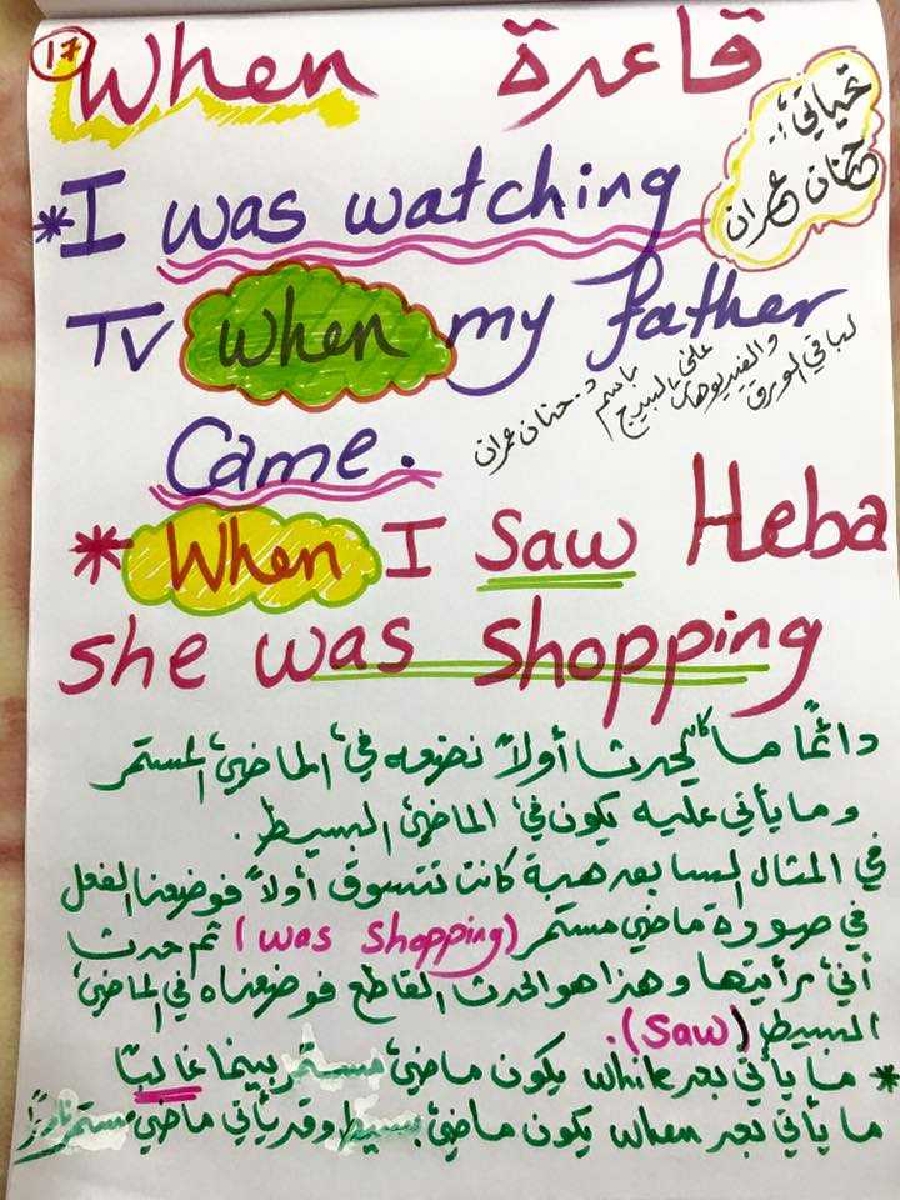 ١٧
When قاعدة
تحياتي:
حنان عمران
*I was watching
TV when my father
لباقي الورق
والفيديوهات
على البيدج
باسم
د. حنان عمران
Came.
* When I saw Heba
she was shopping
دائمًا ما كان يحدث أولاً نضعه في الماضي المستمر
وما يأتي عليه يكون في الماضي البسيط.
في المثال السابق هبة كانت تتسوق أولاً فوضعنا الفعل
في صورة ماضي مستمر (was shopping) ثم حدث
أني رأيتها وهذا هو الحدث القاطع فوضعناه في الماضي
البسيط (saw).
* ما يأتي بعد while يكون ماضي مستمر بينما غالبًا
ما يأتي بعد when يكون ماضي بسيط وقد يأتي ماضي مستمر نادرًا